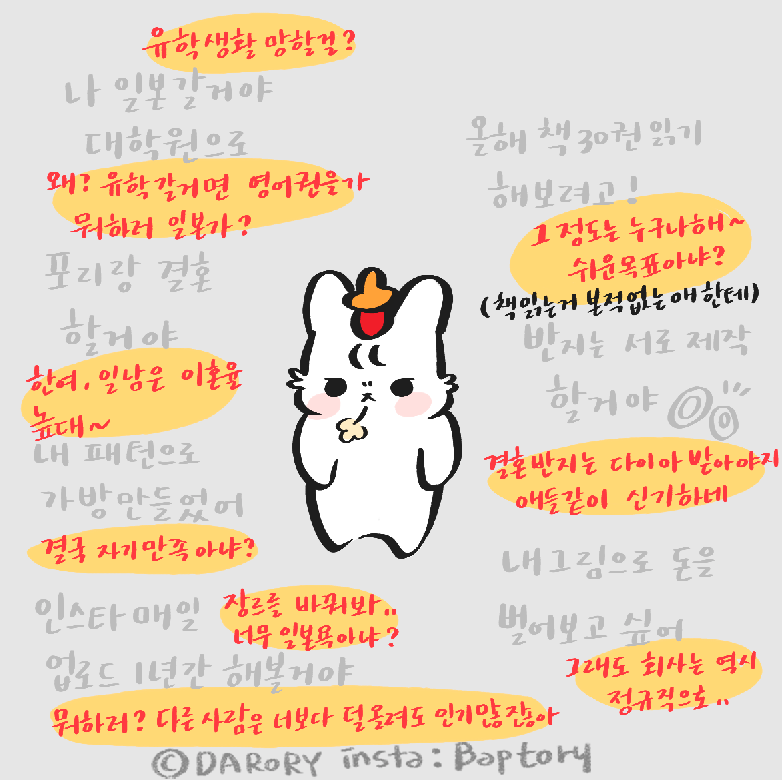 유학생활 망할걸?
나 일본갈거야
대학원으로
왜? 유학갈거면 영어권을가
뭐하러 일본가?
포리랑 결혼
할거야
한여, 일남은 이혼율
높대~
내 패턴으로
가방만들었어
결국 자기만족아냐?
인스타매일
장르를 바꿔봐..
너무 일본욕아냐?
업로드 1년간 해볼거야
뭐하러? 다른사람은 너보다 덜올려도 인기많잖아
올해 책30권읽기
해보려고!
그정도는 누구나해~
쉬운목표아냐?
(책읽는거 본적없는애한테)
반지는 서로제작
할거야
결혼반지는 다이아 받아야지
애들같이 신기하네
내그림으로 돈을
벌어보고 싶어
그래도 회사는 역시
정규직으로..
©DARORY insta: Baptory